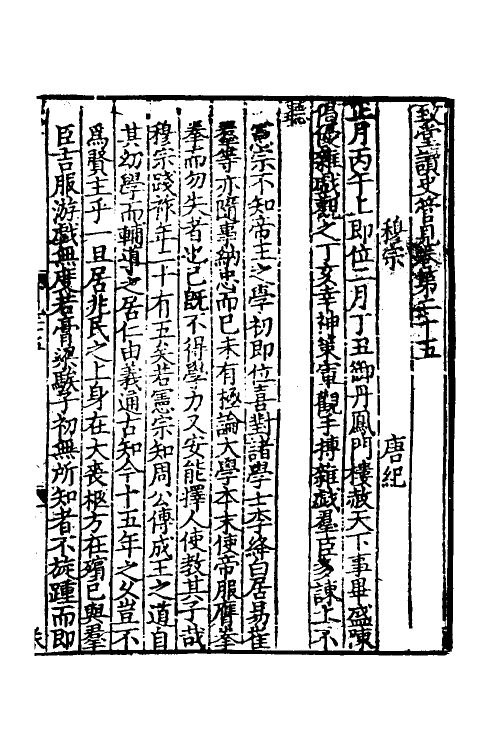 致堂讀史管見卷第二十五
穆宗　唐紀
正月丙午上即位二月丁丑御丹鳳門樓赦天下事畢盛陳
倡優雜戲觀之丁亥幸神策軍觀手搏雜戲羣臣多諫上不
聽
憲宗不知帝王之學初即位喜對諸學士李絳白居易崔
羣等亦隨事納忠而已未有極論大學本末使帝服膺拳
拳而勿失者也己既不得學力又安能擇人使教其子哉
穆宗踐祚年二十有五矣若憲宗知周公傳成王之道自
其幼學而輔導之居仁由義通古知今十五年之久豈不
爲賢主乎一旦居兆民之上身在大喪柩方在殯已與羣
臣吉服游戲無度若膏粱騃子初無所知者不旋踵而即